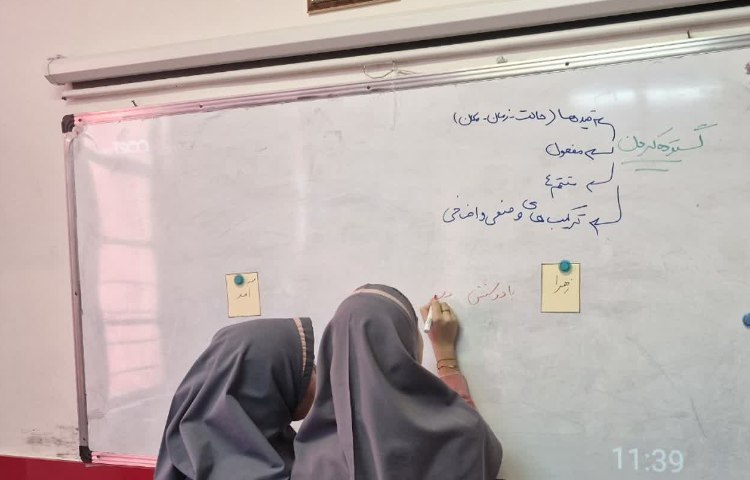 گسترده کردن
قیدها (حالت - زمان - مکان)
مفعول
متمم
ترکیب های وصفی و اضافی
زهرا
آمد
با دوستش
11:39